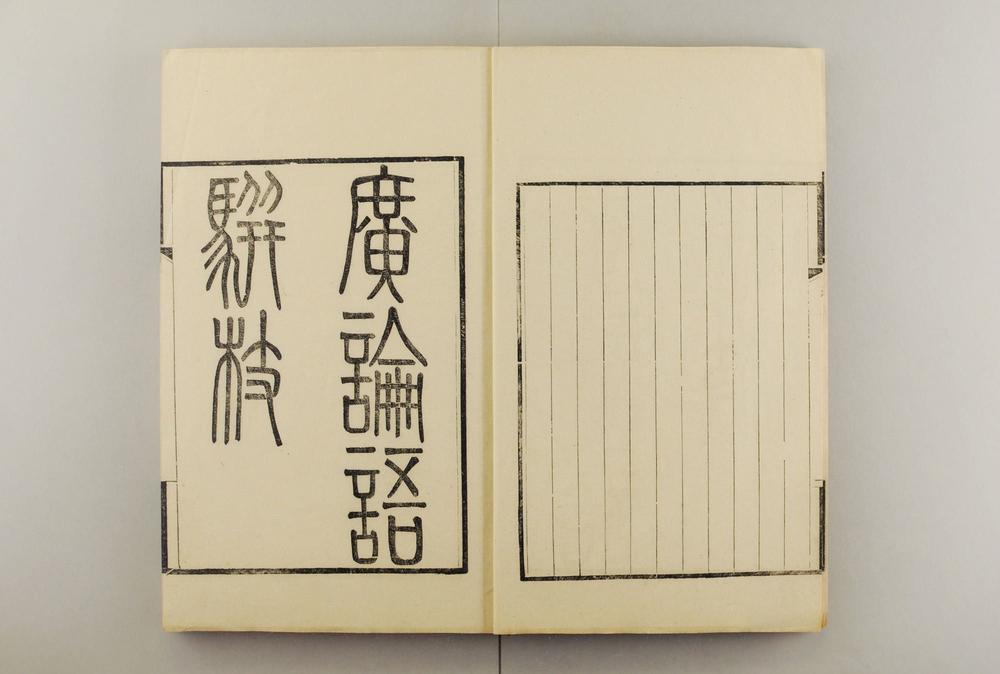 廣論語
駢枝